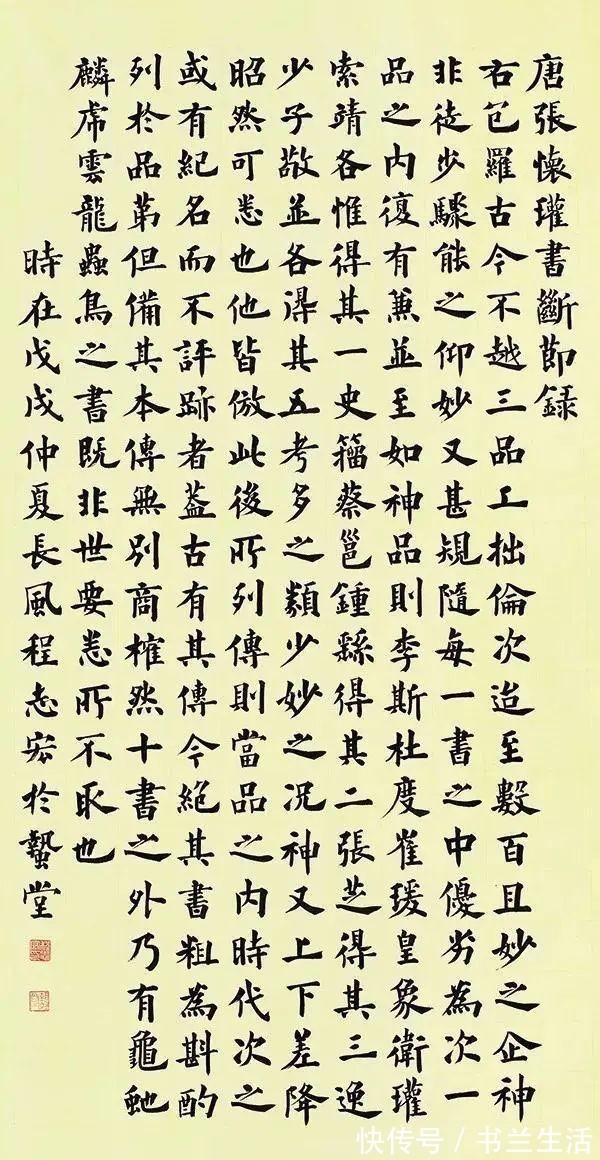 唐張懷瓘書斷節錄
右包羅古今不越三品工拙倫次迨至數百且妙之企神
非徒步驟能之仰妙又甚規隨每一書之中優劣為次一
品之內復有兼並至如神品則李斯杜度崔瑗皇象衛瓘
索靖各惟得其一史籀蔡邕鍾繇得其二張芝得其三逸
少子敬並各得其五考多之類少妙之況神又上下差降
昭然可悉也他皆倣此後所列傳則當品之內時代次之
或有紀名而不評跡者蓋古有其傳今絕其書粗為斟酌
列於品第但備其本傳無別商榷然十書之外乃有龜虵
麟虎雲龍蟲鳥之書既非世要悉所不取也
時在戊戌仲夏長風程志宏於蟄堂
快传号 / 书兰生活